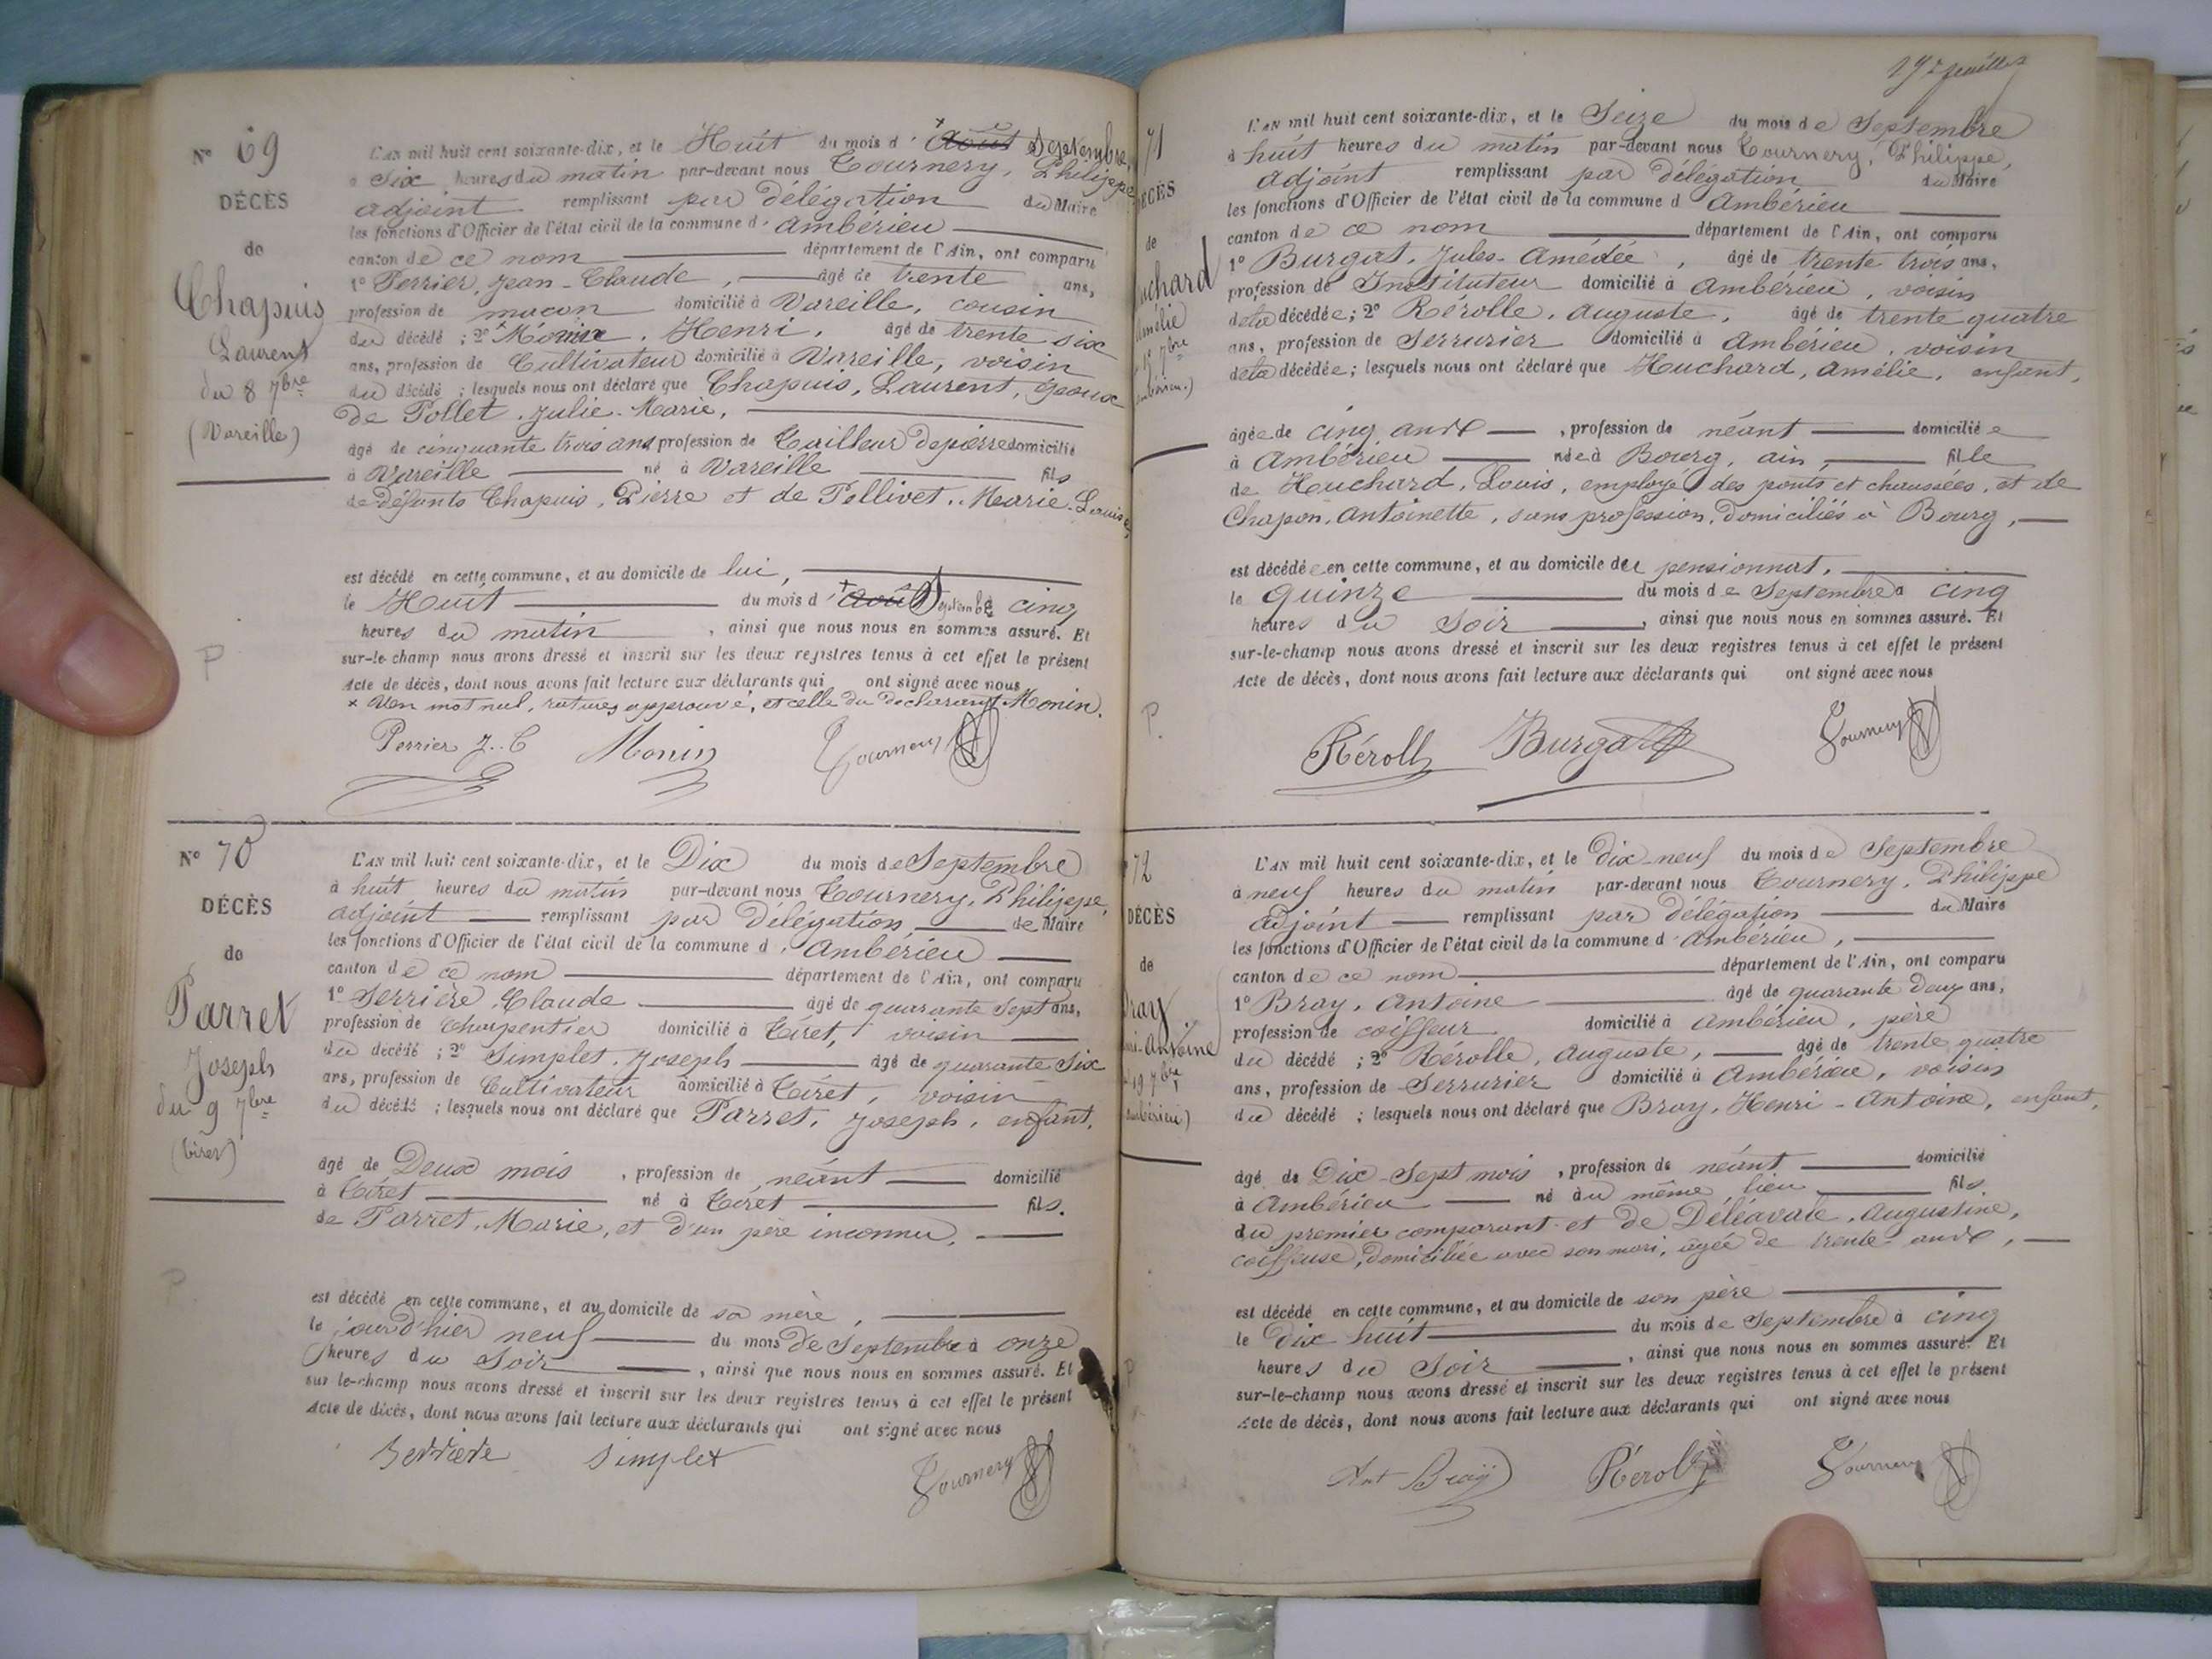 N° 69
DÉCÈS
de
Chapuis
Laurent
du 8 7bre
(Vareille)
L'AN mil huit cent soixante-dix, et le Huit du mois d' Août Septembre
à Six heures du matin par-devant nous Tournery, Philippe
adjoint remplissant par délégation du Maire
les fonctions d'Officier de l'état civil de la commune d' Ambérieu
canton de ce nom département de l'Ain, ont comparu
1° Perrier, Jean-Claude, âgé de trente ans,
profession de maçon domicilié à Vareille, cousin
du décédé ; 2° Monin, Henri, âgé de trente six
ans, profession de Cultivateur domicilié à Vareille, voisin
du décédé ; lesquels nous ont déclaré que Chapuis, Laurent, époux
de Pollet, Julie-Marie,
âgé de cinquante trois ans profession de Tailleur de pierre domicilié
à Vareille né à Vareille fils
de défunts Chapuis, Pierre et de Pellivet, Marie-Louise,
est décédé en cette commune, et au domicile de lui,
le Huit du mois d' Août Septembre cinq
heures du matin, ainsi que nous nous en sommes assuré. Et
sur-le-champ nous avons dressé et inscrit sur les deux registres tenus à cet effet le présent
Acte de décès, dont nous avons fait lecture aux déclarants qui ont signé avec nous
mot nul, ratures approuvé, et celle du déclarant Monin.
Perrier J. C Monin Tournery
N° 70
DÉCÈS
de
Parret
Joseph
du 9 7bre
(Tiret)
L'AN mil huit cent soixante-dix, et le Dix du mois de Septembre
à huit heures du matin par-devant nous Tournery, Philippe,
adjoint remplissant par délégation, de Maire
les fonctions d'Officier de l'état civil de la commune d' Ambérieu
canton de ce nom département de l'Ain, ont comparu
1° Serrière, Claude âgé de quarante sept ans,
profession de Charpentier domicilié à Tiret, voisin
du décédé ; 2° Simplet, Joseph âgé de quarante six
ans, profession de Cultivateur domicilié à Tiret, voisin
du décédé ; lesquels nous ont déclaré que Parret, Joseph, enfant,
âgé de Deux mois, profession de néant domicilié
à Tiret né à Tiret fils.
de Parret, Marie, et d'un père inconnu,
est décédé en cette commune, et au domicile de sa mère,
le jour d'hier neuf du mois de Septembre à onze
heures du Soir, ainsi que nous nous en sommes assuré. Et
sur-le-champ nous avons dressé et inscrit sur les deux registres tenus à cet effet le présent
Acte de décès, dont nous avons fait lecture aux déclarants qui ont signé avec nous
Serrière Simplet Tournery
71
DÉCÈS
de
uchard
Amélie
7bre
L'AN mil huit cent soixante-dix, et le Seize du mois de Septembre
à huit heures du matin par-devant nous Tournery, Philippe,
adjoint remplissant par délégation du Maire
les fonctions d'Officier de l'état civil de la commune d' Ambérieu
canton de ce nom département de l'Ain, ont comparu
1° Burgat, Jules-Amédée, âgé de trente trois ans,
profession de Instituteur domicilié à Ambérieu, voisin
de la décédée ; 2° Rérolle, Auguste, âgé de trente quatre
ans, profession de Serrurier domicilié à Ambérieu, voisin
de la décédée ; lesquels nous ont déclaré que Huchard, Amélie, enfant,
âgée de cinq ans, profession de néant domiciliée
à Ambérieu née à Bourg, ain, fille
de Huchard, Louis, employé des ponts et chaussées, et de
Chapon, Antoinette, sans profession, domiciliés à Bourg,
est décédée en cette commune, et au domicile du pensionnat,
le quinze du mois de Septembre à cinq
heures du Soir, ainsi que nous nous en sommes assuré. Et
sur-le-champ nous avons dressé et inscrit sur les deux registres tenus à cet effet le présent
Acte de décès, dont nous avons fait lecture aux déclarants qui ont signé avec nous
Réroll Burgat Tournery
72
DÉCÈS
de
Bray
Antoine
7bre
L'AN mil huit cent soixante-dix, et le Dix-neuf du mois de Septembre
à neuf heures du matin par-devant nous Tournery, Philippe
adjoint remplissant par délégation du Maire
les fonctions d'Officier de l'état civil de la commune d' Ambérieu,
canton de ce nom département de l'Ain, ont comparu
1° Bray, Antoine âgé de quarante deux ans,
profession de coiffeur domicilié à Ambérieu, père
du décédé ; 2° Rérolle, Auguste, âgé de trente quatre
ans, profession de Serrurier domicilié à Ambérieu, voisin
du décédé ; lesquels nous ont déclaré que Bray, Henri-Antoine, enfant,
âgé de Dix-Sept mois, profession de néant domicilié
à Ambérieu né au même lieu fils
du premier comparant et de Déléavale, Augustine,
coiffeuse, domiciliée avec son mari, âgée de trente ans,
est décédé en cette commune, et au domicile de son père
le dix huit du mois de Septembre à cinq
heures du Soir, ainsi que nous nous en sommes assuré. Et
sur-le-champ nous avons dressé et inscrit sur les deux registres tenus à cet effet le présent
Acte de décès, dont nous avons fait lecture aux déclarants qui ont signé avec nous
Ant Bray Réroll Tournery